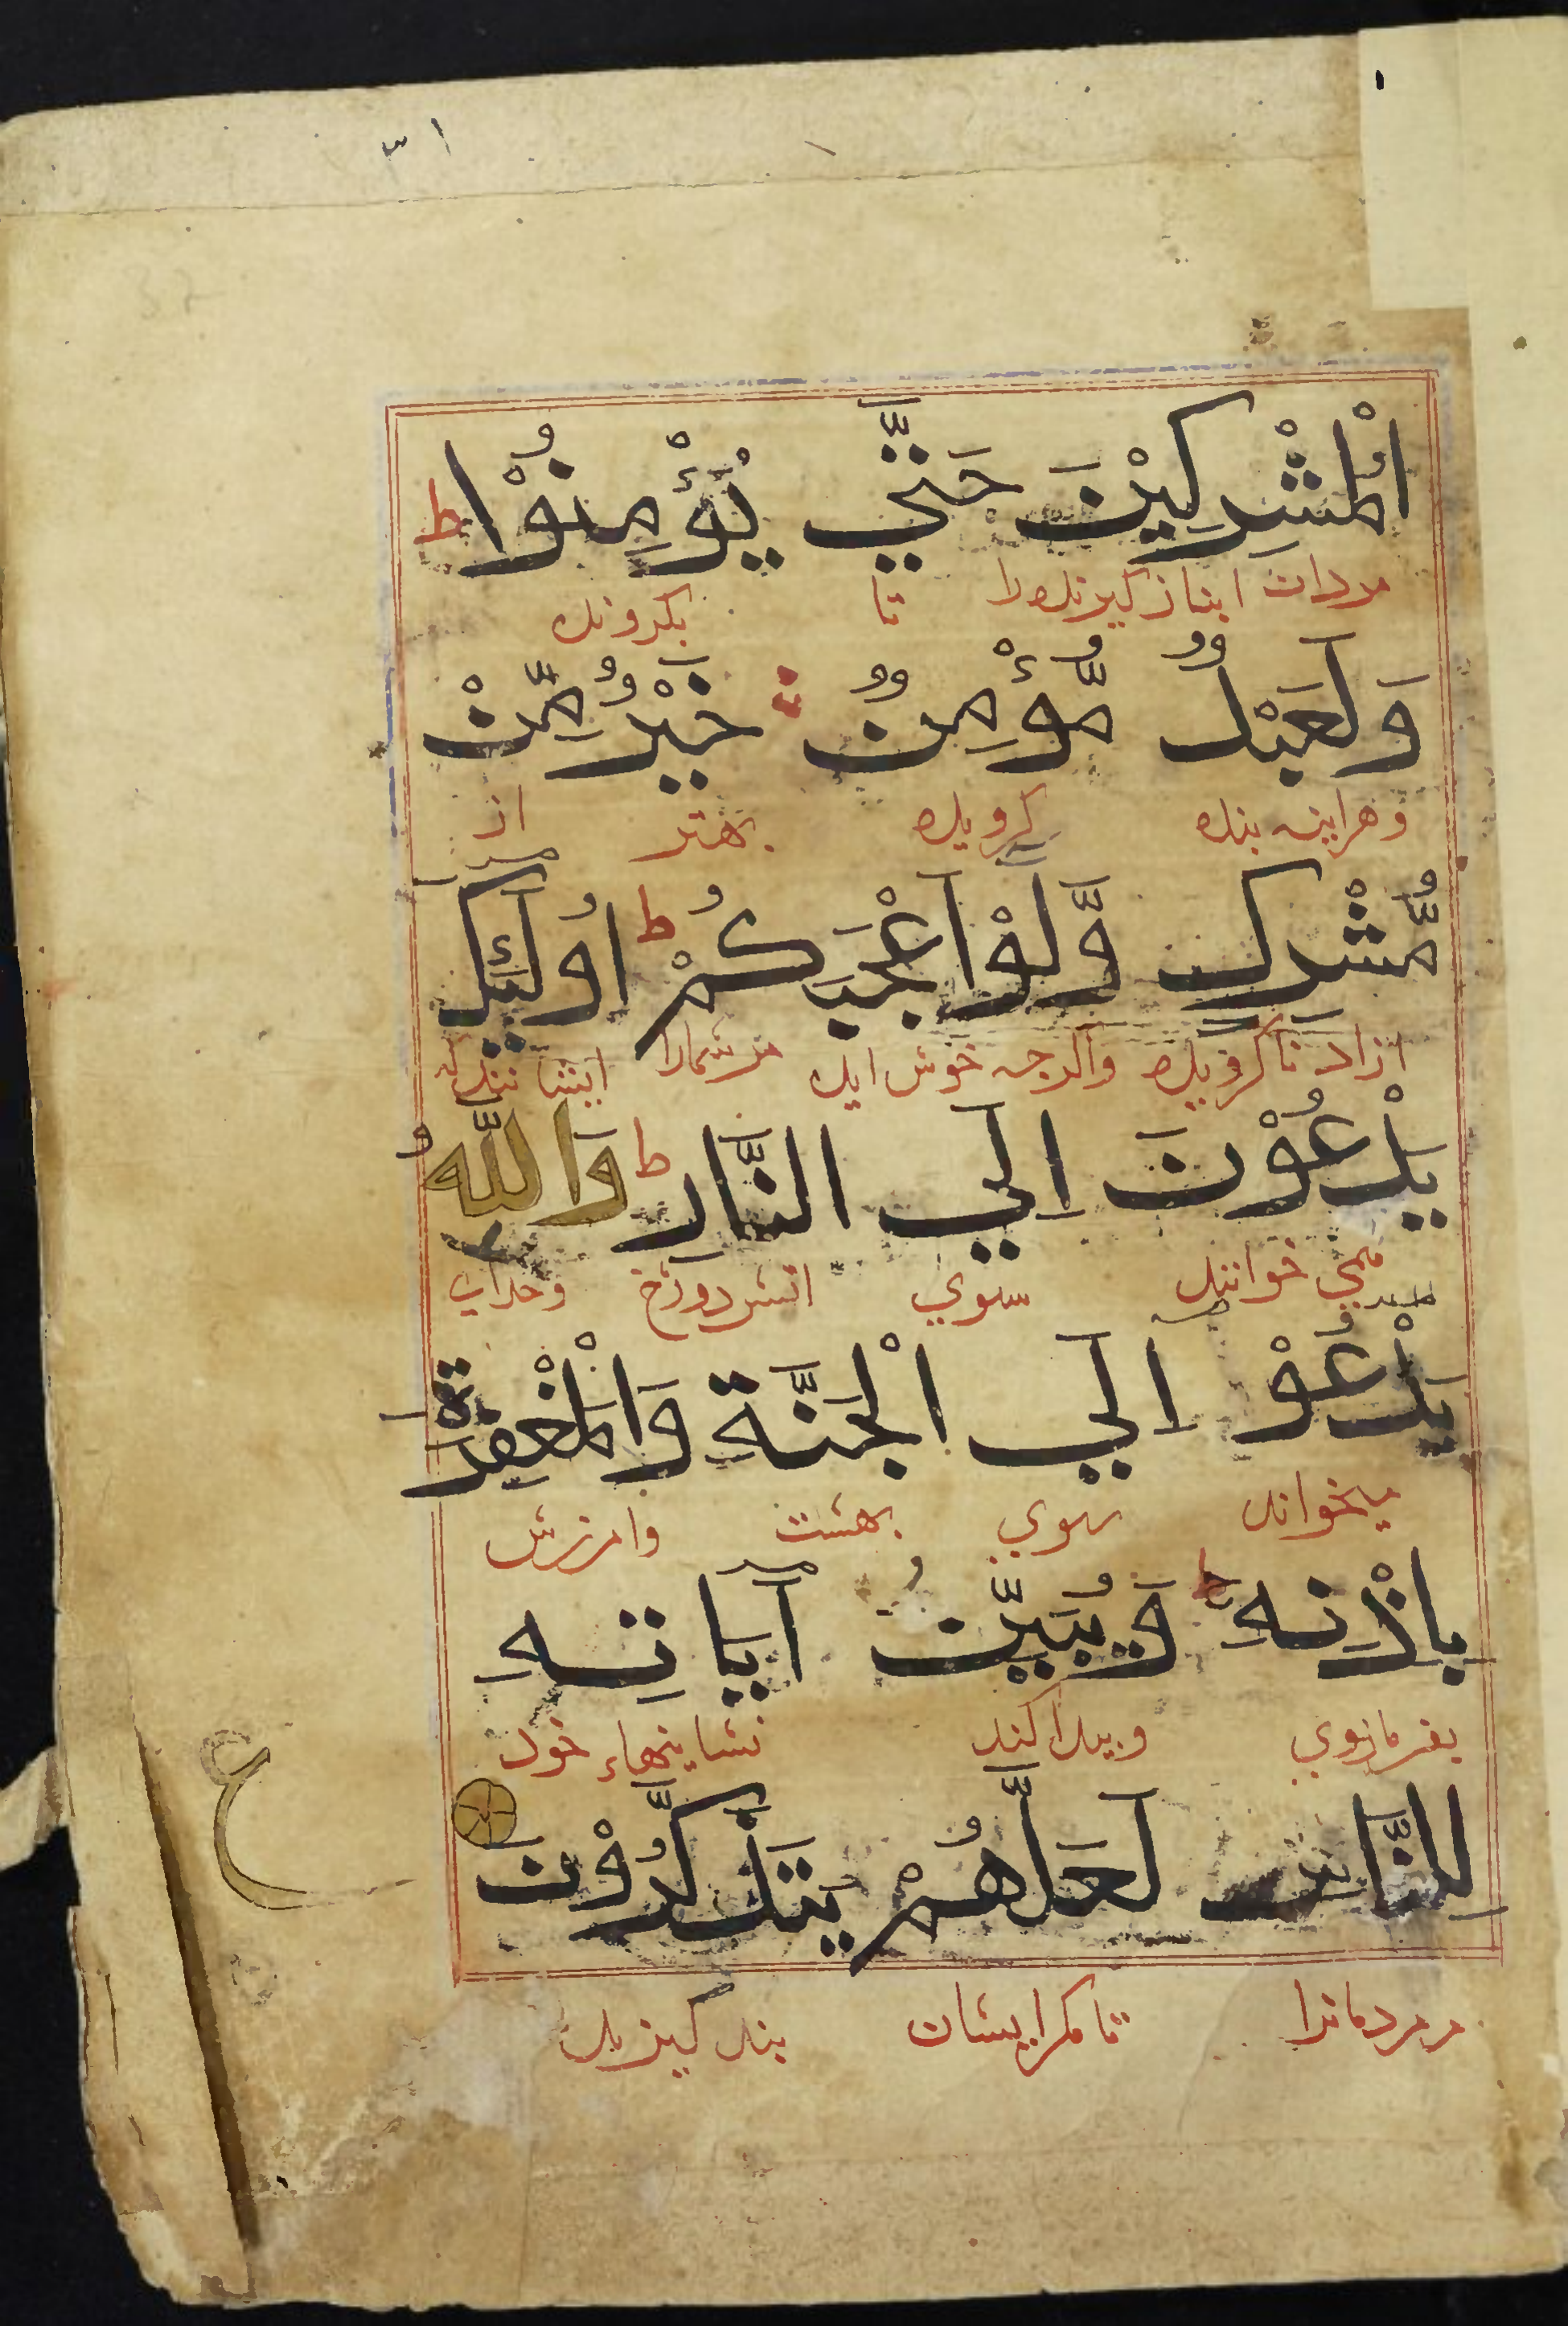 ٣١
الْمُشْرِكِيْنَ حَتّٰي يُؤْمِنُوْا ط
مردان انباز كيرنده را تا بكروند
وَلَعَبْدٌ مُّؤْمِنٌ خَيْرٌ مِّنْ
وهراينه بنده كرويده بهتر از
مُّشْرِكٍ وَّلَوْ اَعْجَبَكُمْ ط اُولٰٓئِكَ
ازاد ناكرويده واكرجه خوش ايد مر شمارا
يَدْعُوْنَ اِلَي النَّارِ ط وَاللّٰهُ
مي خوانند سوي اتش دوزخ وخداي
يَدْعُوْ اِلَي الْجَنَّةِ وَالْمَغْفِرَةِ
ميخواند سوي بهشت وامرزش
بِاِذْنِهٖ ط وَيُبَيِّنُ آيَاتِهٖ
بفرمان وي وبيدا كند نشاينهاء خود
لِلنَّاسِ لَعَلَّهُمْ يَتَذَكَّرُوْنَ
مر مردمانرا تا مكر ايشان بند كيرند
ع